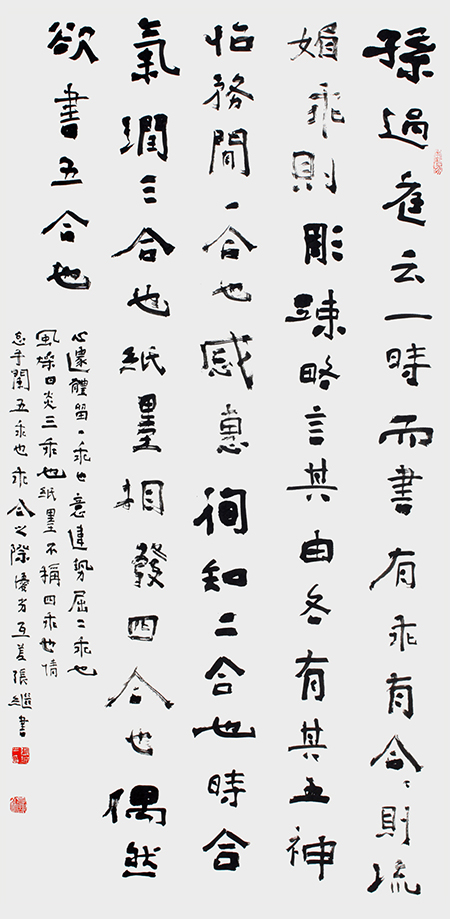 孫過庭云一時而書有乖有合合則流
媚乖則彫疎略言其由各有其五神
怡務閒一合也感惠徇知二合也時合
氣潤三合也紙墨相發四合也偶然
欲書五合也
心遽體留一乖也意違勢屈二乖也
風燥日炎三乖也紙墨不稱四乖也情
怠手闌五乖也乖合之際優劣互差張繼書